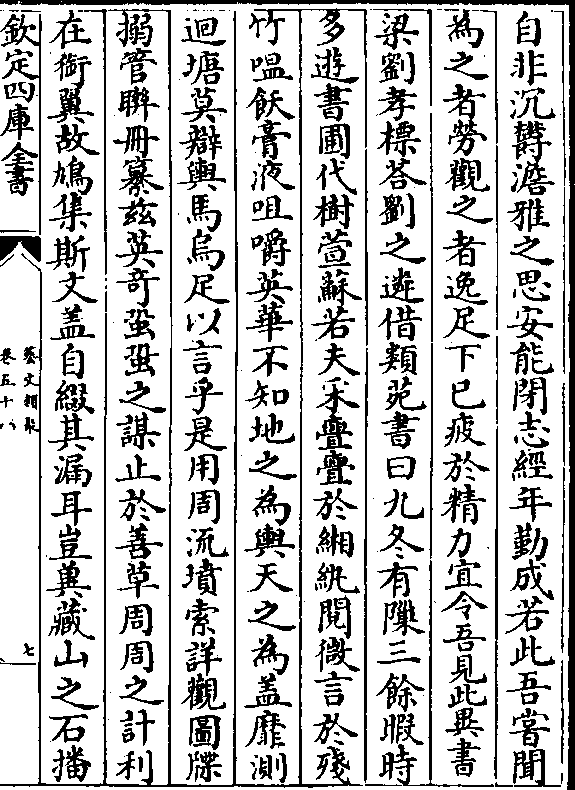 自非沉鬱澹雅之思安能閉志經年勤成若此吾嘗聞
為之者勞觀之者逸足下已疲於精力宜令吾見此異書
梁劉孝標荅劉之遴借類苑書曰九冬有隟三餘暇時
多遊書圃代樹萱蘇若夫采亹亹於緗紈閱微言於殘
竹嗢飫膏液咀嚼英華不知地之為輿天之為蓋靡測
迴塘莫辯輿馬烏足以言乎是用周流墳索詳觀圖牒
搦管聯冊纂茲英奇蛩蛩之謀止於善草周周之計利
在銜翼故鳩集斯文蓋自綴其漏耳豈冀藏山之石播
欽定四庫全書
藝文類聚
卷五十八
七